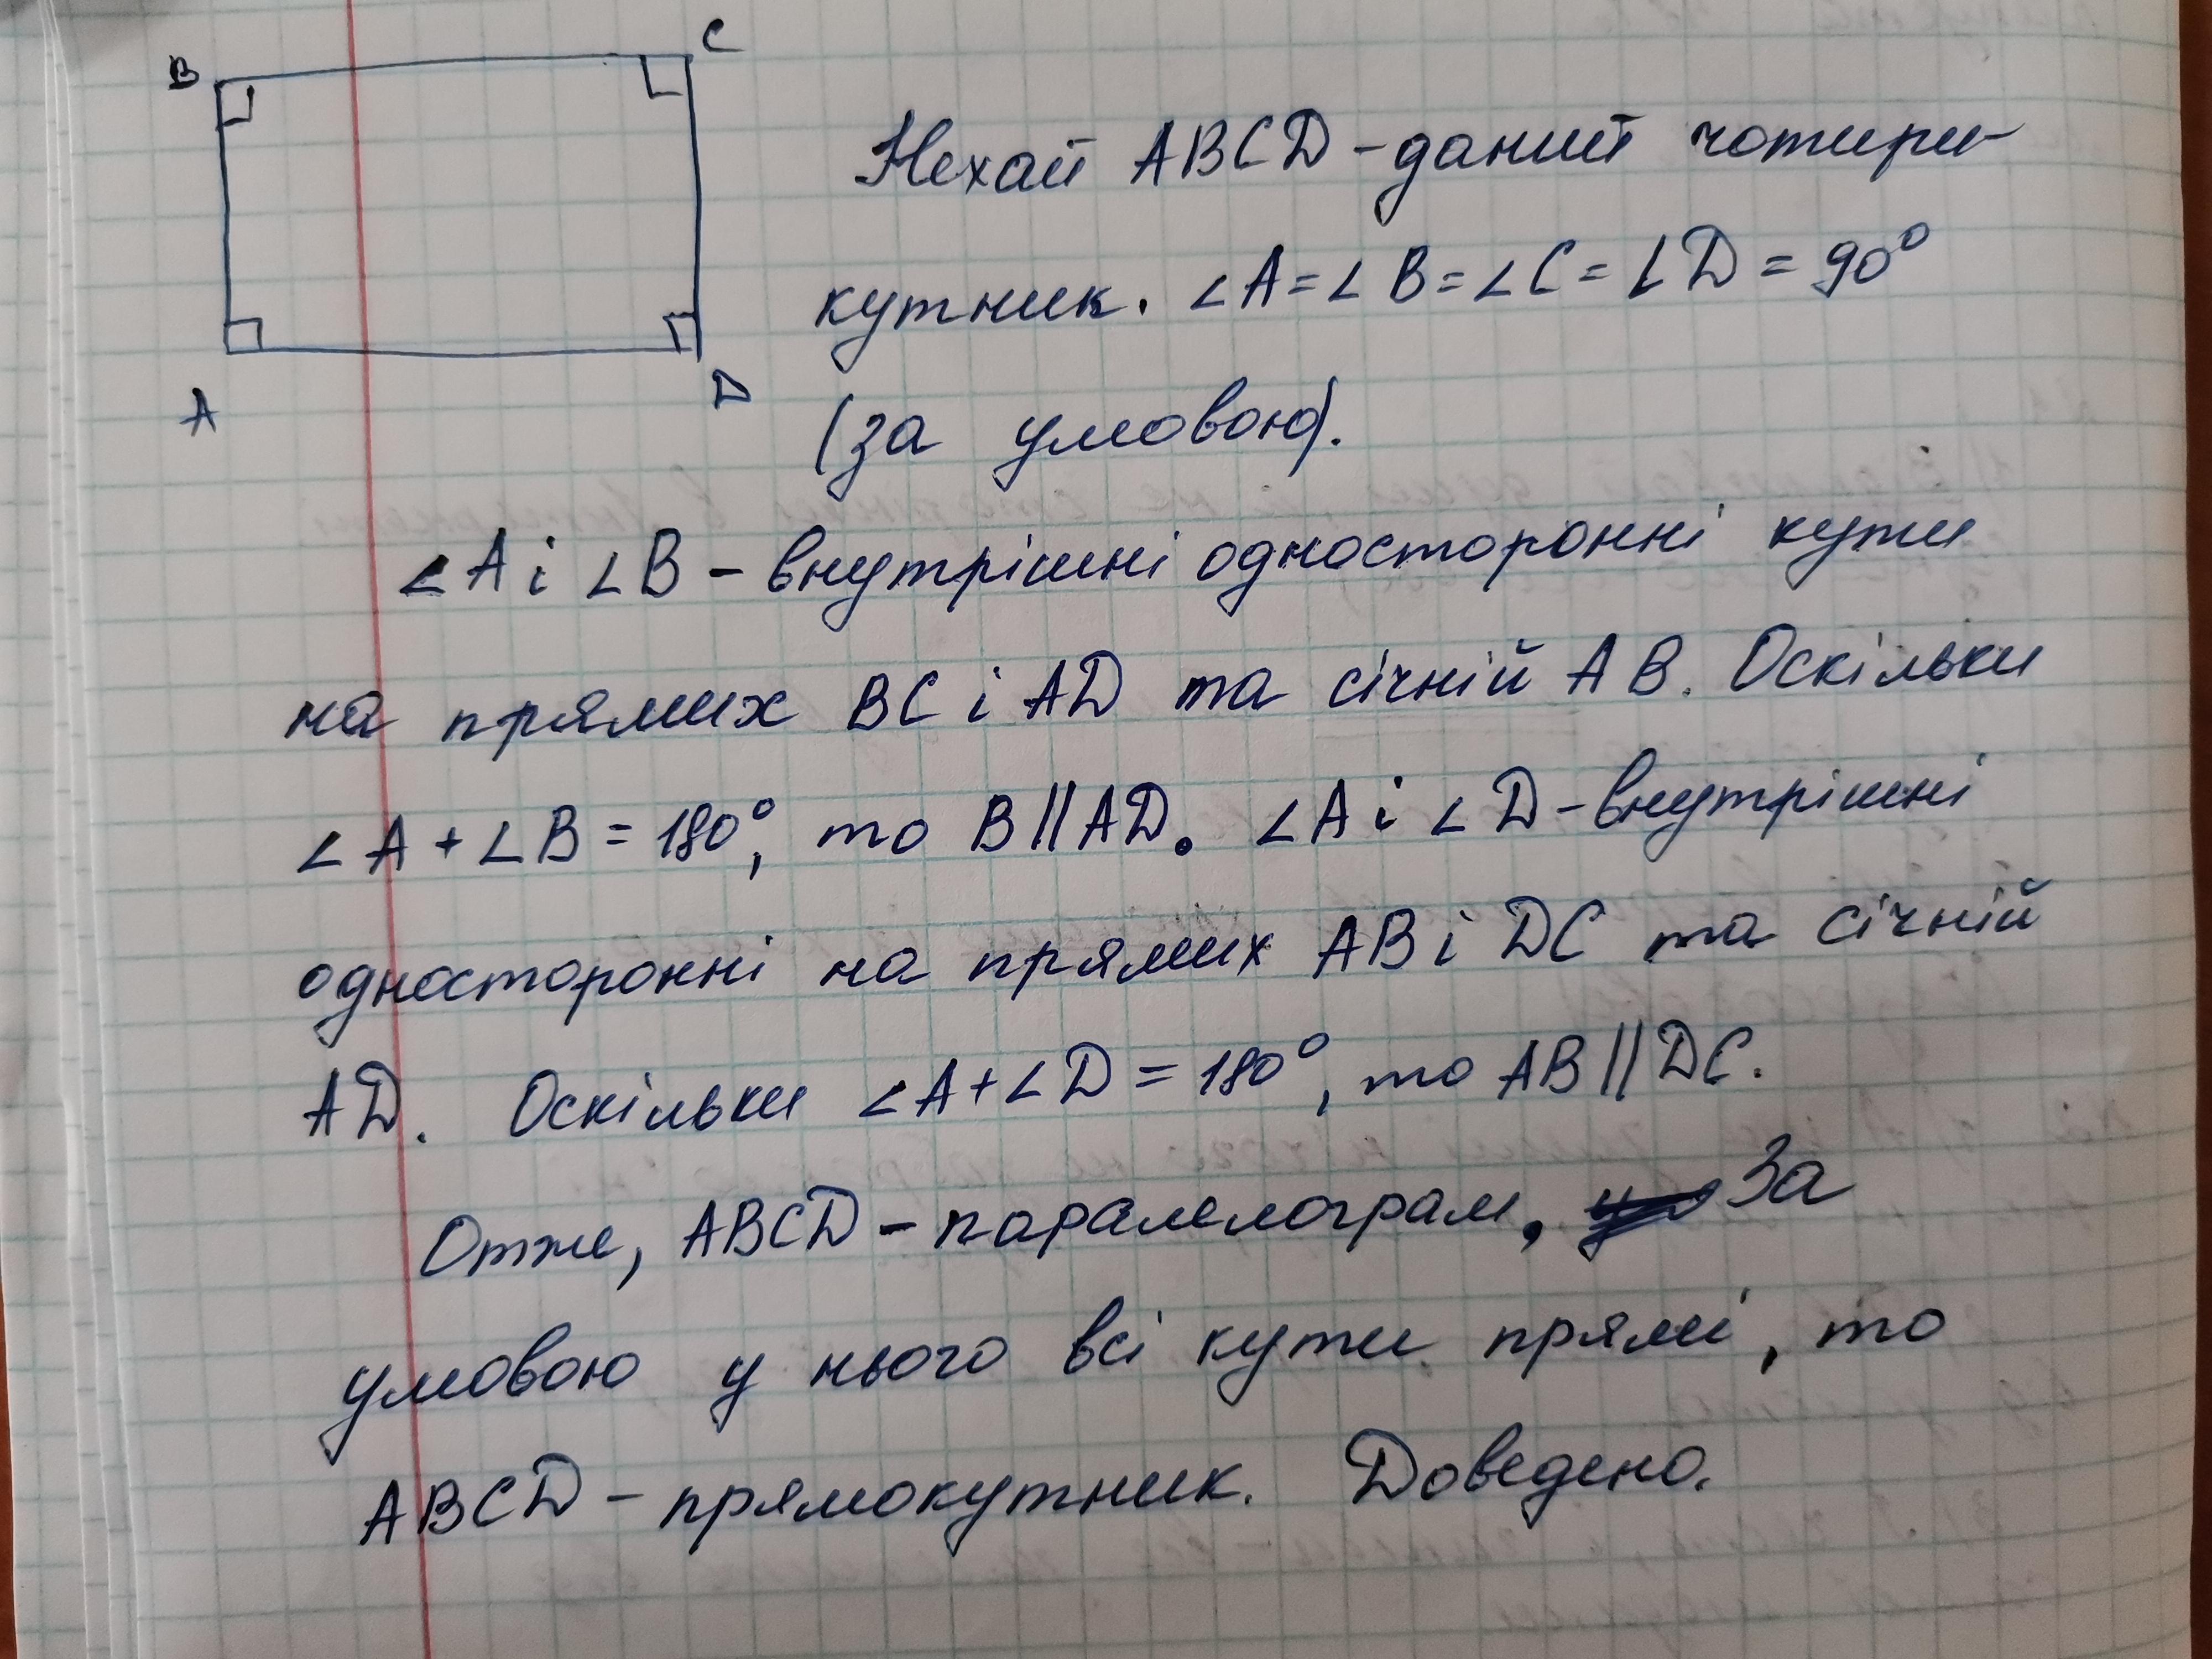 B
C
A
D
Нехай ABCD - даний чотири-
кутник. ∠A = ∠B = ∠C = ∠D = 90°
(за умовою).
∠A і ∠B - внутрішні односторонні кути
на прямих BC і AD та січній AB. Оскільки
∠A + ∠B = 180°, то B || AD. ∠A і ∠D - внутрішні
односторонні на прямих AB і DC та січній
AD. Оскільки ∠A + ∠D = 180°, то AB || DC.
Отже, ABCD - паралелограм. За
умовою у нього всі кути прямі, то
ABCD - прямокутник. Доведено.